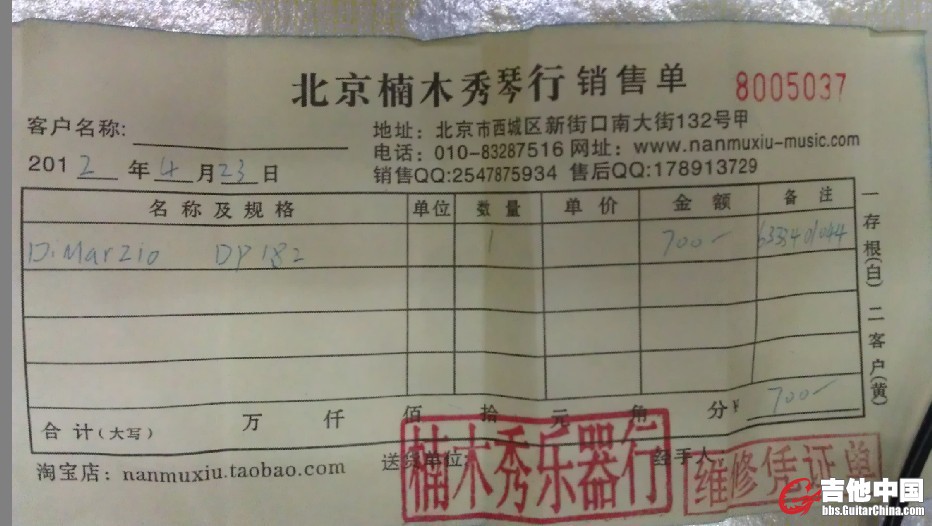 北京楠木秀琴行 销售单 8005037
客户名称:
地址: 北京市西城区新街口南大街132号甲
电话: 010-83287516 网址: www.nanmuxiu-music.com
2012年4月23日
销售QQ:2547875934 售后QQ:178913729
名称及规格 单位 数量 单价 金额 备注
DiMarzio DP182 1 700-
合计(大写) 万 仟 佰 拾 元 角 分 ¥ 700-
淘宝店: nanmuxiu.taobao.com 送货单位 经手人:
一存根(白) 二客户(黄)
楠木秀乐器行
维修凭证单
吉他中国
bbs.GuitarChina.com